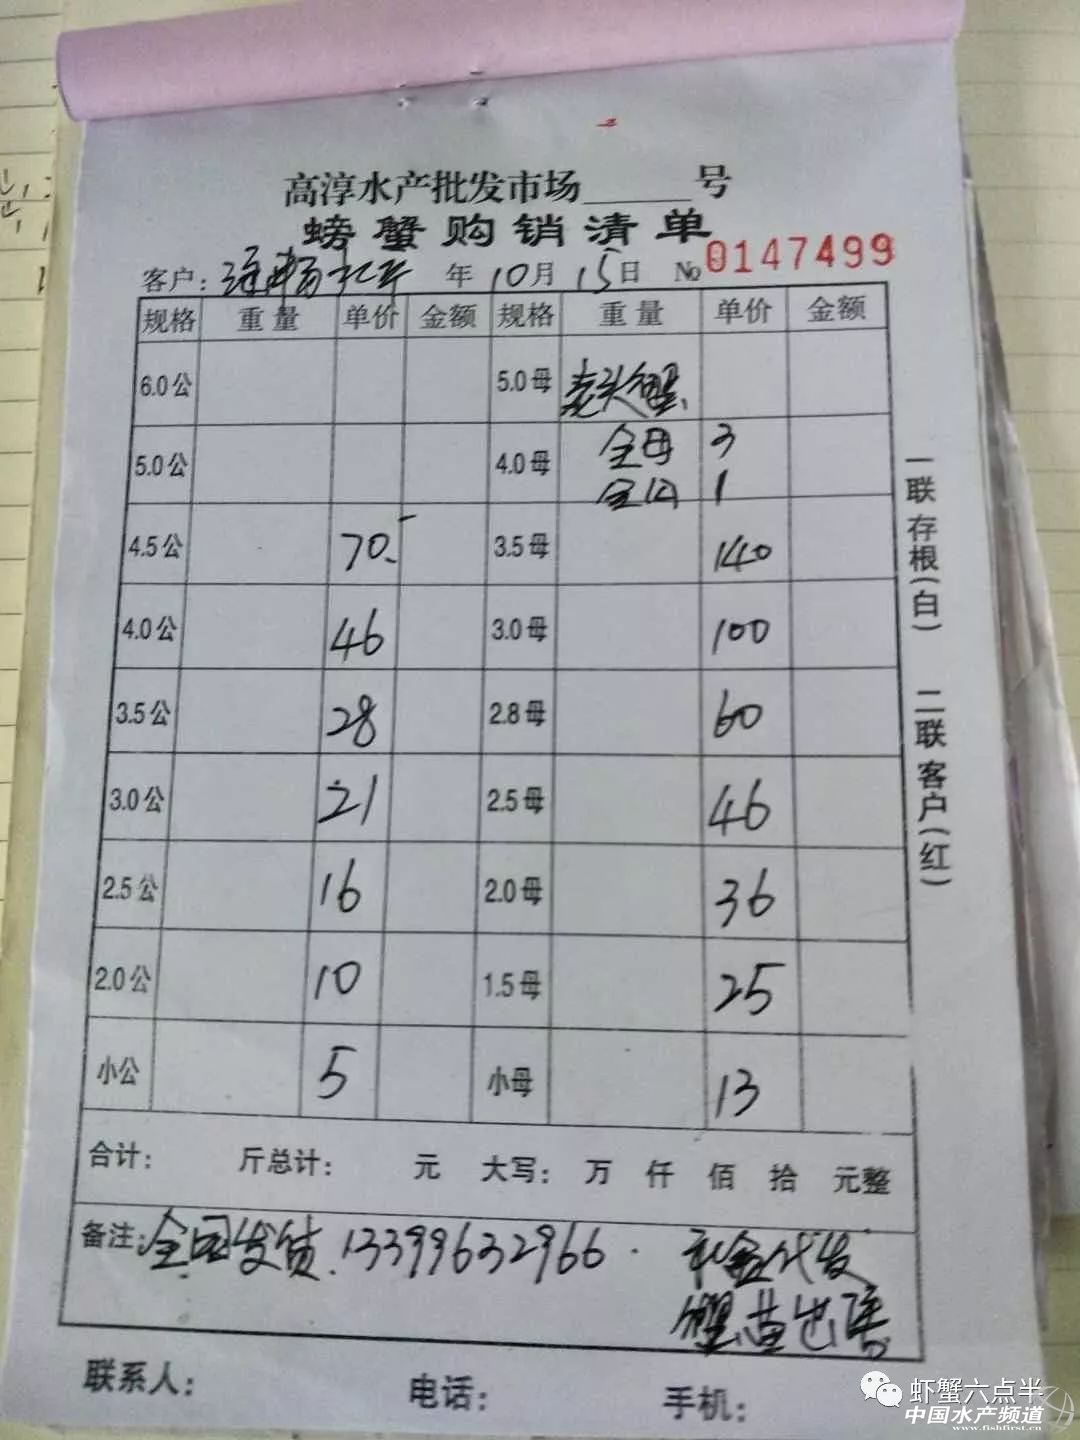 高淳水产批发市场______号
螃蟹购销清单
客户: 年 10月 15日 No 0147499
规格 重量 单价 金额 规格 重量 单价 金额
6.0公 5.0母 老头蟹
5.0公 4.0母 全母 3
全公 1
4.5公 70- 3.5母 140
4.0公 46 3.0母 100
3.5公 28 2.8母 60
3.0公 21 2.5母 46
2.5公 16 2.0母 36
2.0公 10 1.5母 25
小公 5 小母 13
合计: 斤总计: 元 大写: 万 仟 佰 拾 元整
备注: 全国发货 13399632966. 代发
蟹苗出售
联系人: 电话: 手机:
一联存根(白) 二联客户(红)
虾蟹六点半
中国水产频道
www.fishfirst.cn